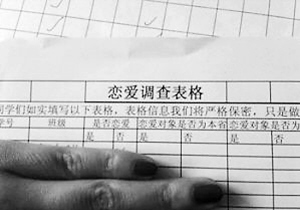 恋爱调查表格
同学们如实填写以下表格，表格信息我们将严格保密，只是做
学号 班级 是否恋爱 恋爱对象是否为本省 恋爱对象是否为本
是 否 是 否 是 否